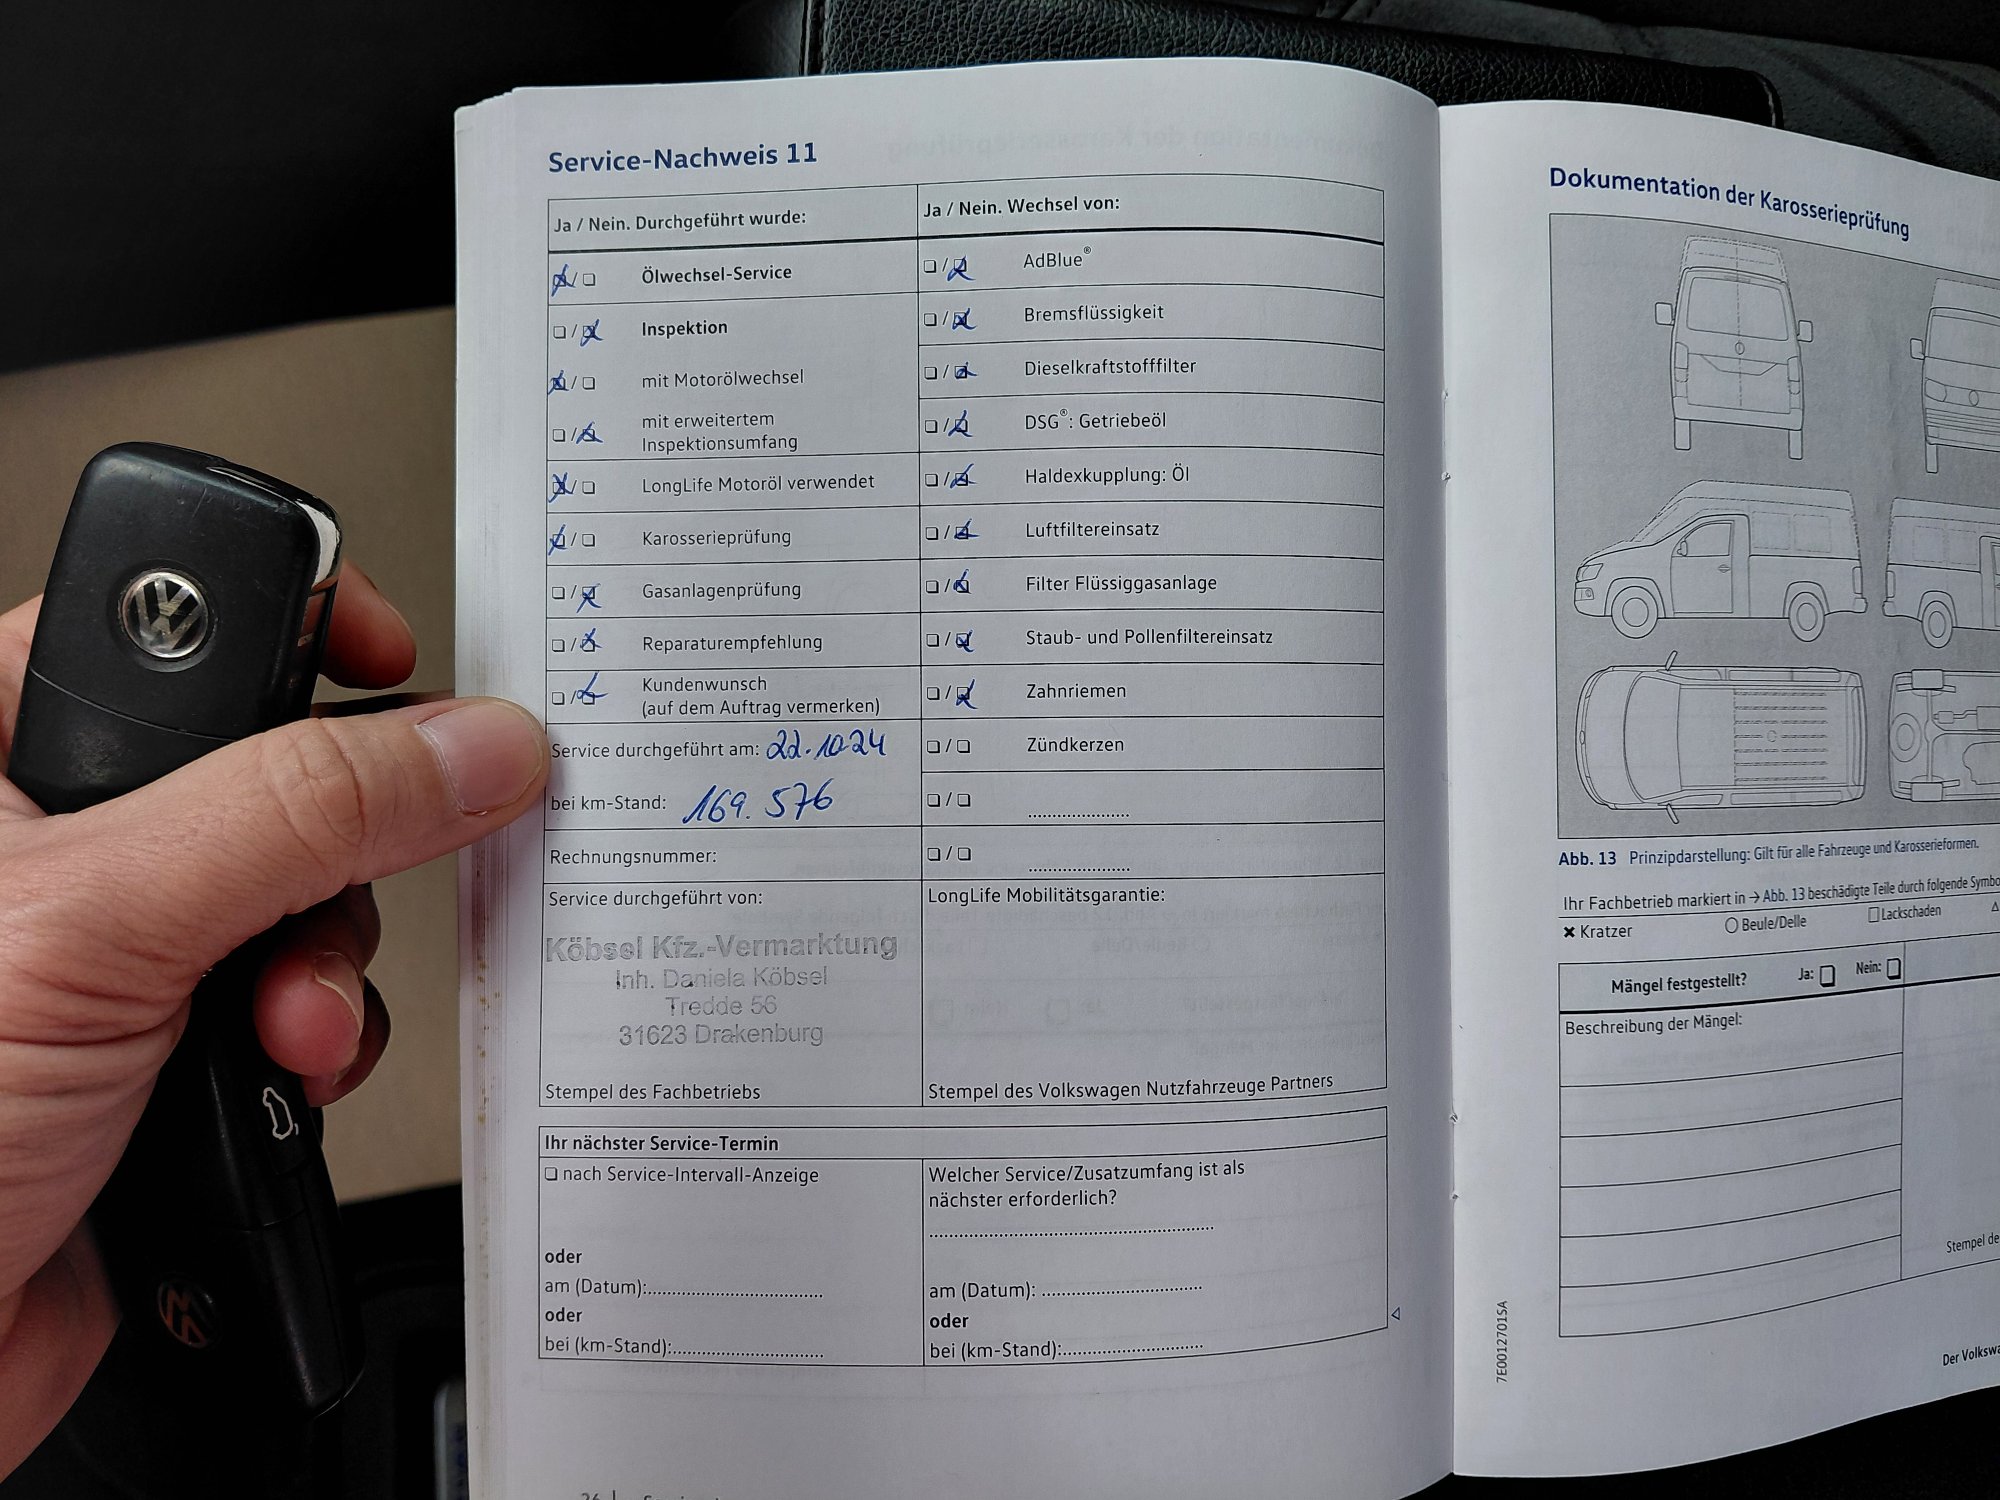 Service-Nachweis 11
Ja / Nein. Durchgeführt wurde:
Ölwechsel-Service
Inspektion
mit Motorölwechsel
mit erweitertem
Inspektionsumfang
LongLife Motoröl verwendet
Karosserieprüfung
Gasanlagenprüfung
Reparaturempfehlung
Kundenwunsch
(auf dem Auftrag vermerken)
Service durchgeführt am: 22.10.24
bei km-Stand: 169.576
Rechnungsnummer:
Service durchgeführt von:
Köbsel Kfz.-Vermarktung
Inh. Daniela Köbsel
Tredde 56
31623 Drakenburg
Stempel des Fachbetriebs
Ja / Nein. Wechsel von:
AdBlue®
Bremsflüssigkeit
Dieselkraftstofffilter
DSG®: Getriebeöl
Haldexkupplung: Öl
Luftfiltereinsatz
Filter Flüssiggasanlage
Staub- und Pollenfiltereinsatz
Zahnriemen
Zündkerzen
LongLife Mobilitätsgarantie:
Stempel des Volkswagen Nutzfahrzeuge Partners
Ihr nächster Service-Termin
nach Service-Intervall-Anzeige
oder
am (Datum):
oder
bei (km-Stand):
Welcher Service/Zusatzumfang ist als
nächster erforderlich?
am (Datum):
oder
bei (km-Stand):
Dokumentation der Karosserieprüfung
Abb. 13 Prinzipdarstellung: Gilt für alle Fahrzeuge und Karosserieformen.
Ihr Fachbetrieb markiert in → Abb. 13 beschädigte Teile durch folgende
Kratzer Beule/Delle Lackschaden
Mängel festgestellt? Ja: Nein:
Beschreibung der Mängel:
Stempel
Der
7E0012701SA